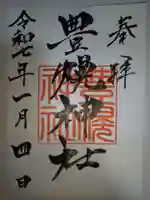 奉拝
豊幌神社
令和七年一月四日